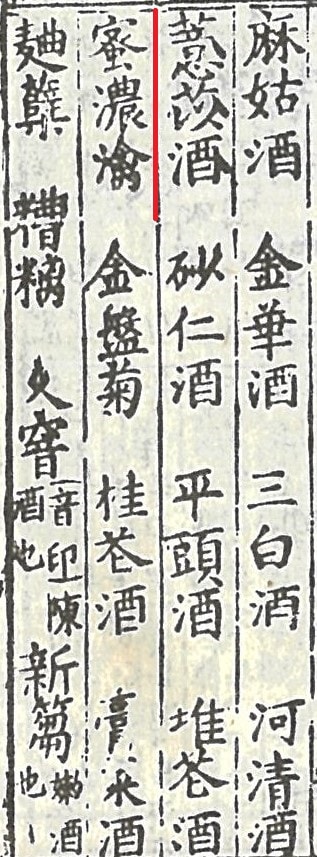 麻姑酒 金華酒 三白酒 河清酒
薏苡酒 砂仁酒 平頭酒 堆花酒
蜜濃 金盤菊 桂花酒 米酒
麯糵 糟 火窨 音印陳酒也 新篘 嫩酒也